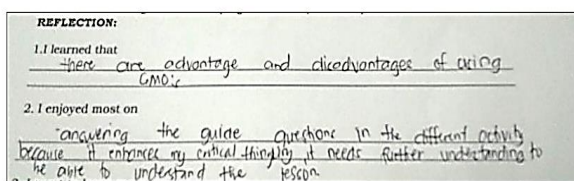 REFLECTION:
1.I learned that
there are advantage and disadvantages of using
GMO's
2. I enjoyed most on
answering the guide questions in the different activity
because it enhances my critical thinking it needs further understanding to
be able to understand the lesson